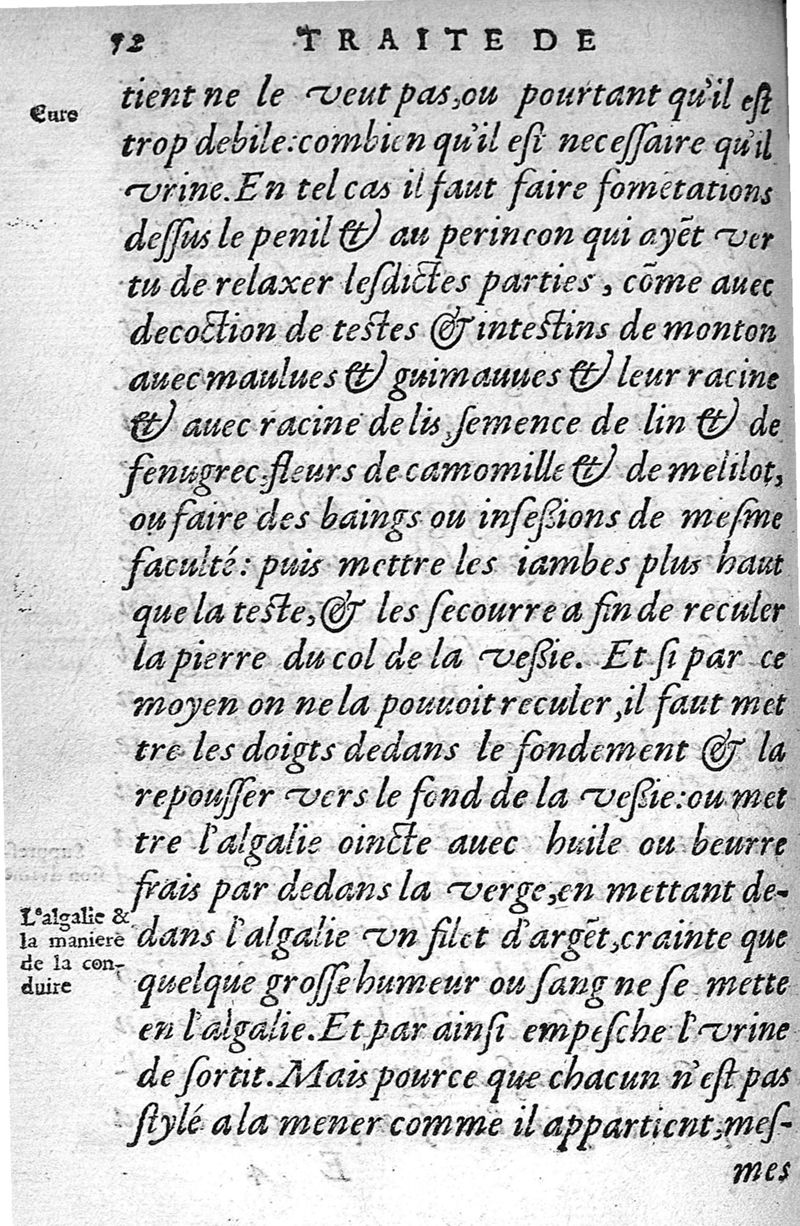 52 TRAITE DE
Cure
tient ne le veut pas,ou pourtant qu'il est
trop debile:combien qu'il est necessaire qu'il
vrine.En tel cas il faut faire fomẽtations
dessus le penil & au perineon qui ayẽt ver
tu de relaxer lesdictes parties, cõme auec
decoction de testes & intestins de monton
auec maulues & guimauues & leur racine
& auec racine de lis,semence de lin & de
fenugrec,fleurs de camomille & de melilot,
ou faire des baings ou insessions de mesme
faculté: puis mettre les iambes plus haut
que la teste,& les secourre a fin de reculer
la pierre du col de la vessie. Et si par ce
moyen on ne la pouuoit reculer,il faut met
tre les doigts dedans le fondement & la
repousser vers le fond de la vessie:ou met
tre l'algalie oincte auec huile ou beurre
frais par dedans la verge,en mettant de-
L'algalie &
la maniere
de la con-
duire
dans l'algalie vn filet d'argẽt,crainte que
quelque grosse humeur ou sang ne se mette
en l'algalie.Et par ainsi empesche l'vrine
de sortit.Mais pource que chacun n'est pas
stylé a la mener comme il appartient,mes-
mes